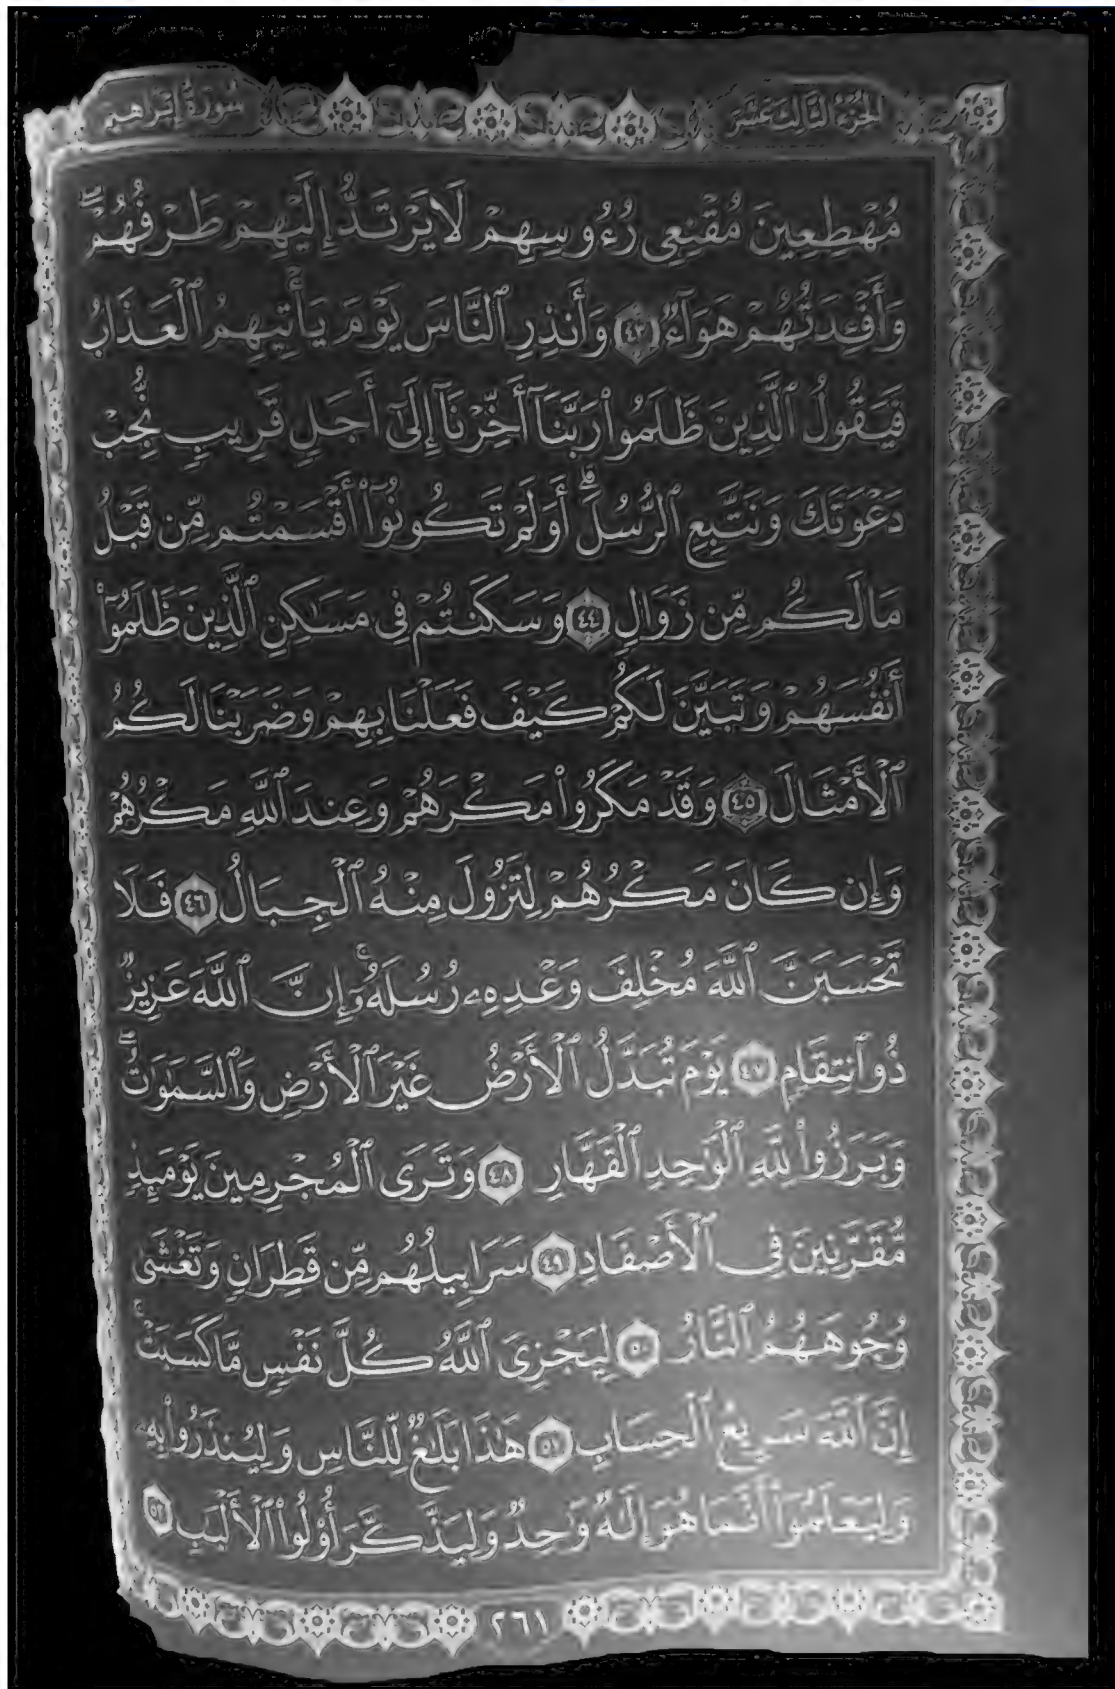 سُورَةُ إِبْرَاهِيمَ
الجُزْءُ الثَّالِثَ عَشَرَ
مُهْطِعِينَ مُقْنِعِى رُءُوسِهِمْ لَا يَرْتَدُّ إِلَيْهِمْ طَرْفُهُمْۖ
وَأَفْـِٔدَتُهُمْ هَوَآءٌ ٤٣ وَأَنذِرِ ٱلنَّاسَ يَوْمَ يَأْتِيهِمُ ٱلْعَذَابُ
فَيَقُولُ ٱلَّذِينَ ظَلَمُوا۟ رَبَّنَآ أَخِّرْنَآ إِلَىٰٓ أَجَلٍ قَرِيبٍ نُّجِبْ
دَعْوَتَكَ وَنَتَّبِعِ ٱلرُّسُلَۗ أَوَلَمْ تَكُونُوٓا۟ أَقْسَمْتُم مِّن قَبْلُ
مَا لَكُم مِّن زَوَالٍ ٤٤ وَسَكَنتُمْ فِى مَسَـٰكِنِ ٱلَّذِينَ ظَلَمُوٓا۟
أَنفُسَهُمْ وَتَبَيَّنَ لَكُمْ كَيْفَ فَعَلْنَا بِهِمْ وَضَرَبْنَا لَكُمُ
ٱلْأَمْثَالَ ٤٥ وَقَدْ مَكَرُوا۟ مَكْرَهُمْ وَعِندَ ٱللَّهِ مَكْرُهُمْ
وَإِن كَانَ مَكْرُهُمْ لِتَزُولَ مِنْهُ ٱلْجِبَالُ ٤٦ فَلَا
تَحْسَبَنَّ ٱللَّهَ مُخْلِفَ وَعْدِهِۦ رُسُلَهُۥٓۚ إِنَّ ٱللَّهَ عَزِيزٌ
ذُو ٱنتِقَامٍ ٤٧ يَوْمَ تُبَدَّلُ ٱلْأَرْضُ غَيْرَ ٱلْأَرْضِ وَٱلسَّمَـٰوَٰتُۖ
وَبَرَزُوا۟ لِلَّهِ ٱلْوَٰحِدِ ٱلْقَهَّارِ ٤٨ وَتَرَى ٱلْمُجْرِمِينَ يَوْمَئِذٍ
مُّقَرَّنِينَ فِى ٱلْأَصْفَادِ ٤٩ سَرَابِيلُهُم مِّن قَطِرَانٍ وَتَغْشَىٰ
وُجُوهَهُمُ ٱلنَّارُ ٥٠ لِيَجْزِىَ ٱللَّهُ كُلَّ نَفْسٍ مَّا كَسَبَتْۚ
إِنَّ ٱللَّهَ سَرِيعُ ٱلْحِسَابِ ٥١ هَـٰذَا بَلَـٰغٌ لِّلنَّاسِ وَلِيُنذَرُوا۟ بِهِۦ
وَلِيَعْلَمُوٓا۟ أَنَّمَا هُوَ إِلَـٰهٌ وَٰحِدٌ وَلِيَذَّكَّرَ أُو۟لُوا۟ ٱلْأَلْبَـٰبِ ٥٢
٢٦١